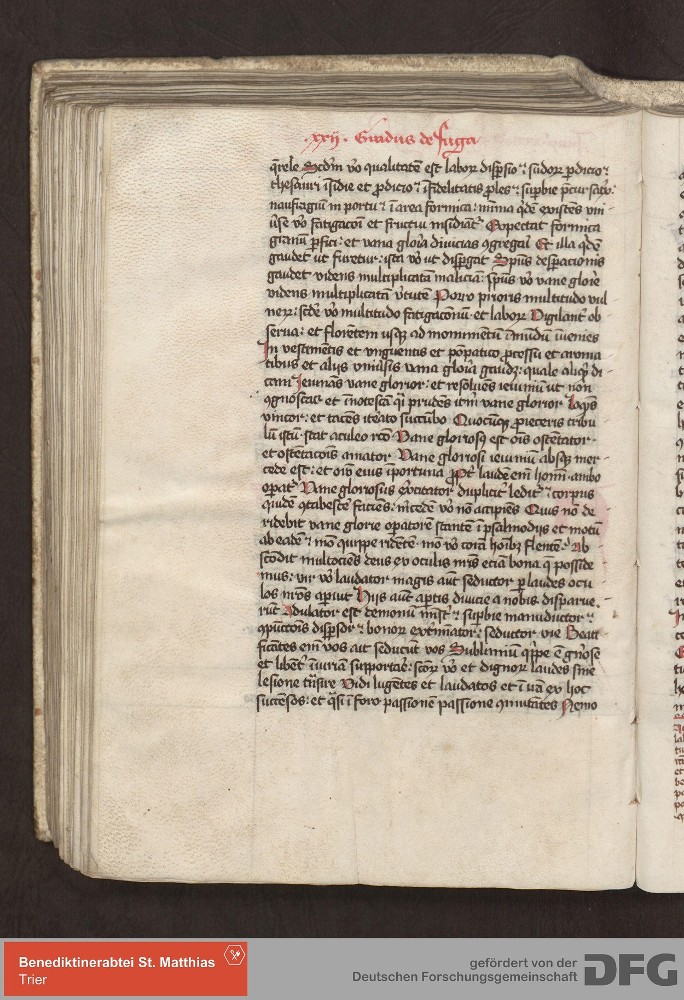 .xxij. Gradus de fuga
q̄rele Scd̄m v̄o qualitatem est labor disp̄sio ⁊ sudor p̱dicio ⁊
thesauri īsidie et p̱dicio ⁊ īfidelitatis p̱les ⁊ supbie
naufragiū in portu ⁊ ī area formica: mīma q̄dē existēs
v̄o fatigacōi et fructui insidiat᷑ Expectat formica
granū p̱fici: et vana gloīa diuicias ꝯgregai Et illa q̄dē
gaudet ut furetur: ista v̄o ut disp̱gat Spūs desp̱acionis
gaudet videns multiplicatā maliciā: spūs v̄o vane glorie
videns multiplicatā v̄tutem Porro prioris multitudo vul
nerū: scd̄e v̄o multitudo fatigacōnum et labor Vigilant᷑ ob
serua: et florentem usqꝫ ad monimentū īmundū īuenies
In vestimentis et vnguentis et pōpatico p̱cessu et aroma
tibus et alijs vana gloīa gaudꝫ: quale aliqͥd di
cam Ieiunās vane glorior: et resoluēs ieiuniū ut non
ꝯgnoscar et īnotescā qͥ prudēs itm̄ vane glorior
vincor: et tacēs iteāto succūbo Quocūqꝫ proieceris tribu
lū istū stat aculeo rc̄o Vane gloriosꝰ est oīs ostētator
et ostētacōis amator Vane gloriosi ieiuniū absqꝫ mer
cede est: et orō eius īportuna p̱pt᷑ laudē em̄ hoīm ambo
op̱at᷑ Vane gloriosus exercitator duplicit᷑ ledit᷑ ⁊ corpus
quidē ꝯtabescē faciēs: m̄cedē v̄o nō accipiēs Quis nō de
ridebit vane glorie op̱atorē stantē ī psalmodijs et motū
ab eadē ⁊ mō quippe ridētē mō v̄o corā hoībꝫ flentē Ab
scōdit multociens deus ex oculis nr̄is etiā bona q̄ posside
mus: vir v̄o laudator magis aūt seductor p̱ laudes ocu
los nr̄os ap̱uit Hijs aūt ap̱tis diuicie a nobis disparue
rūt Adulator est demonū ⁊ supbie manuductor ⁊
ꝯpūctōnis disp̱sor ⁊ bonorū ext̄minator ⁊ seductor vie Beati
ficātes em̄ vos ait seducūt vos Sublimiū qͥppe ē gn̄ose
et libent᷑ īiuriā supportār̄: scōr̄ v̄o et dignor̄ laudes sine
lesione trā̄sire Vidi lugētes et laudatos et ī irā ex hoc
succēsos: et qͣsi ī foro passionē passione ꝯmutātes Nemo
Benediktinerabtei St. Matthias
Trier
gefördert von der
Deutschen Forschungsgemeinschaft
DFG